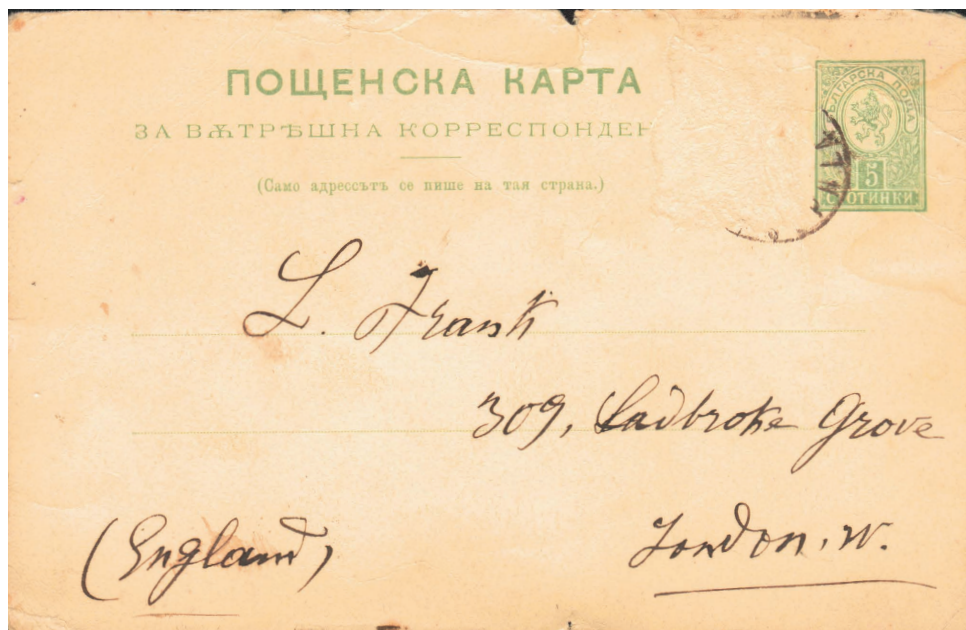 ПОЩЕНСКА КАРТА
ЗА ВѪТРѢШНА КОРРЕСПОНДЕН
(Само адрессътъ се пише на тая страна.)
БЪЛГАРСКА ПОЩА
5
СТОТИНКИ
L. Frank
309, Ladbroke Grove
London. W.
(England)